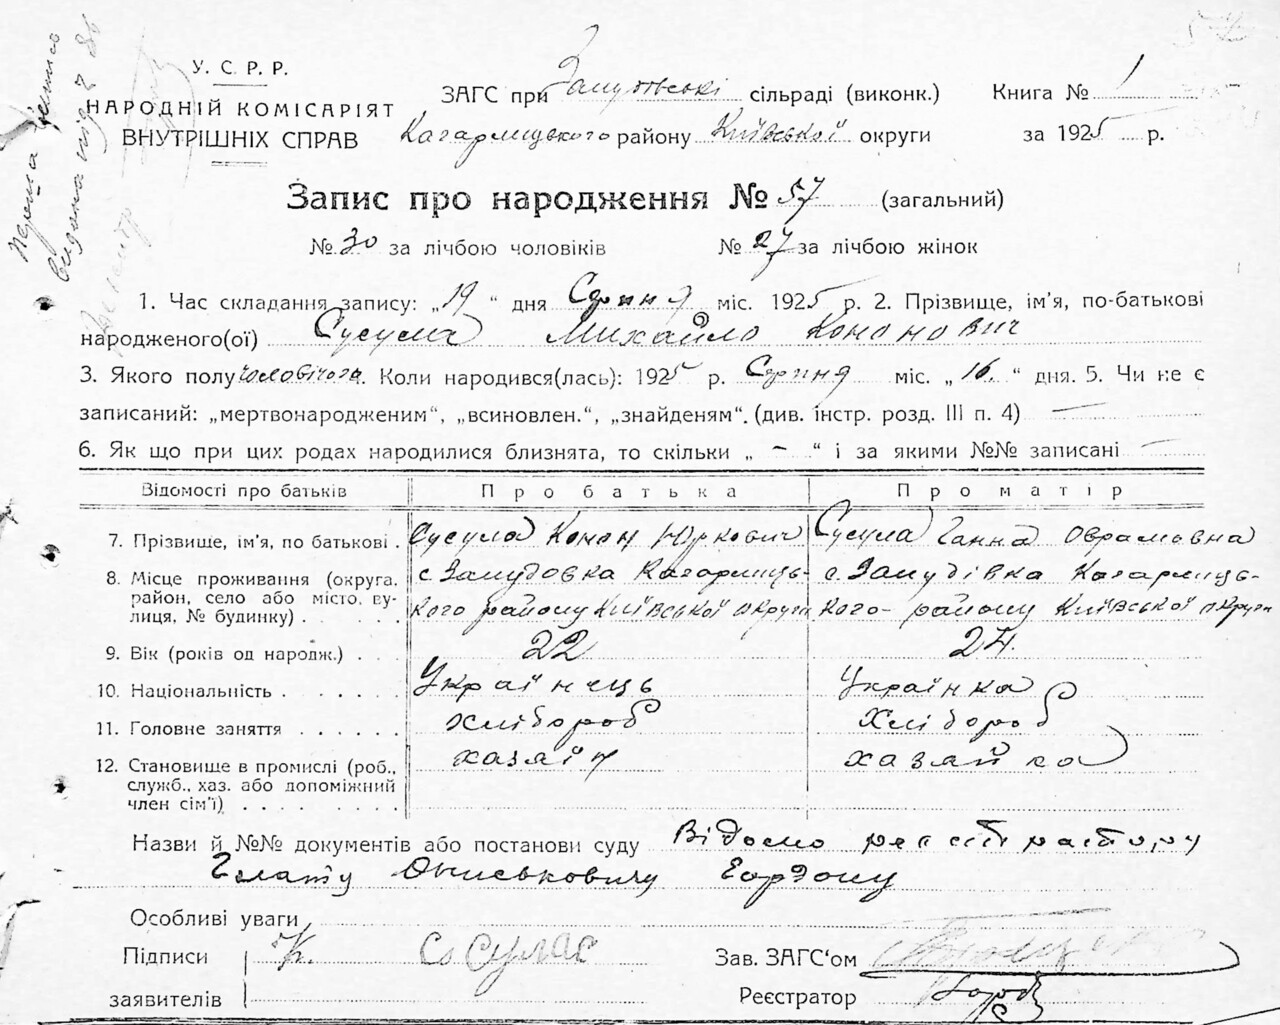 Перша
видана
У. С. Р. Р.
НАРОДНІЙ КОМІСАРІЯТ
ВНУТРІШНІХ СПРАВ
ЗАГС при сільраді (виконк.) Книга № 1
Кагарлицького району Київської округи за 1925 р.
Запис про народження № 57 (загальний)
№ 30 за лічбою чоловіків № 27 за лічбою жінок
1. Час складання запису: „19“ дня Серпня міс. 1925 р. 2. Прізвище, ім'я, по-батькові
народженого(ої) Сусула Михайло Кононович
3. Якого полу чоловічого. Коли народився(лась): 1925 р. Серпня міс. „16.“ дня. 5. Чи не є
записаний: „мертвонародженим“, „всиновлен.“, „знайденям“. (див. інстр. розд. III п. 4) —
6. Як що при цих родах народилися близнята, то скільки „ – “ і за якими №№ записані —
Відомості про батьків Про батька Про матір
7. Прізвище, ім'я, по батькові . Сусула Конон Юркович Сусула Ганна Оврамовна
8. Місце проживання (округа, район, село або місто, вулиця, № будинку) с. Замудовка Кагарлицького району Київської округи с. Замудівка Кагарлицького району Київської округи
9. Вік (років од народж.) . . . 22 24.
10. Національність . . . . . . Українець Українка
11. Головне заняття . . . . . . хлібороб Хлібороб
12. Становище в промислі (роб., служб., хаз. або допоміжний член сім'ї) . . . . . . . . хазяїн хазяйка
Назви й №№ документів або постанови суду Відомо реєстратору
Гнату Ониськовичу
Особливі уваги
Підписи К. Сосулас Зав. ЗАГС'ом
заявителів Реєстратор